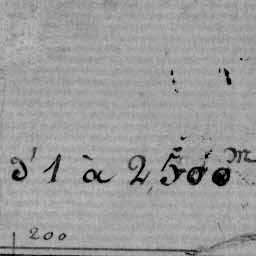 d'1 à 2500^m
200